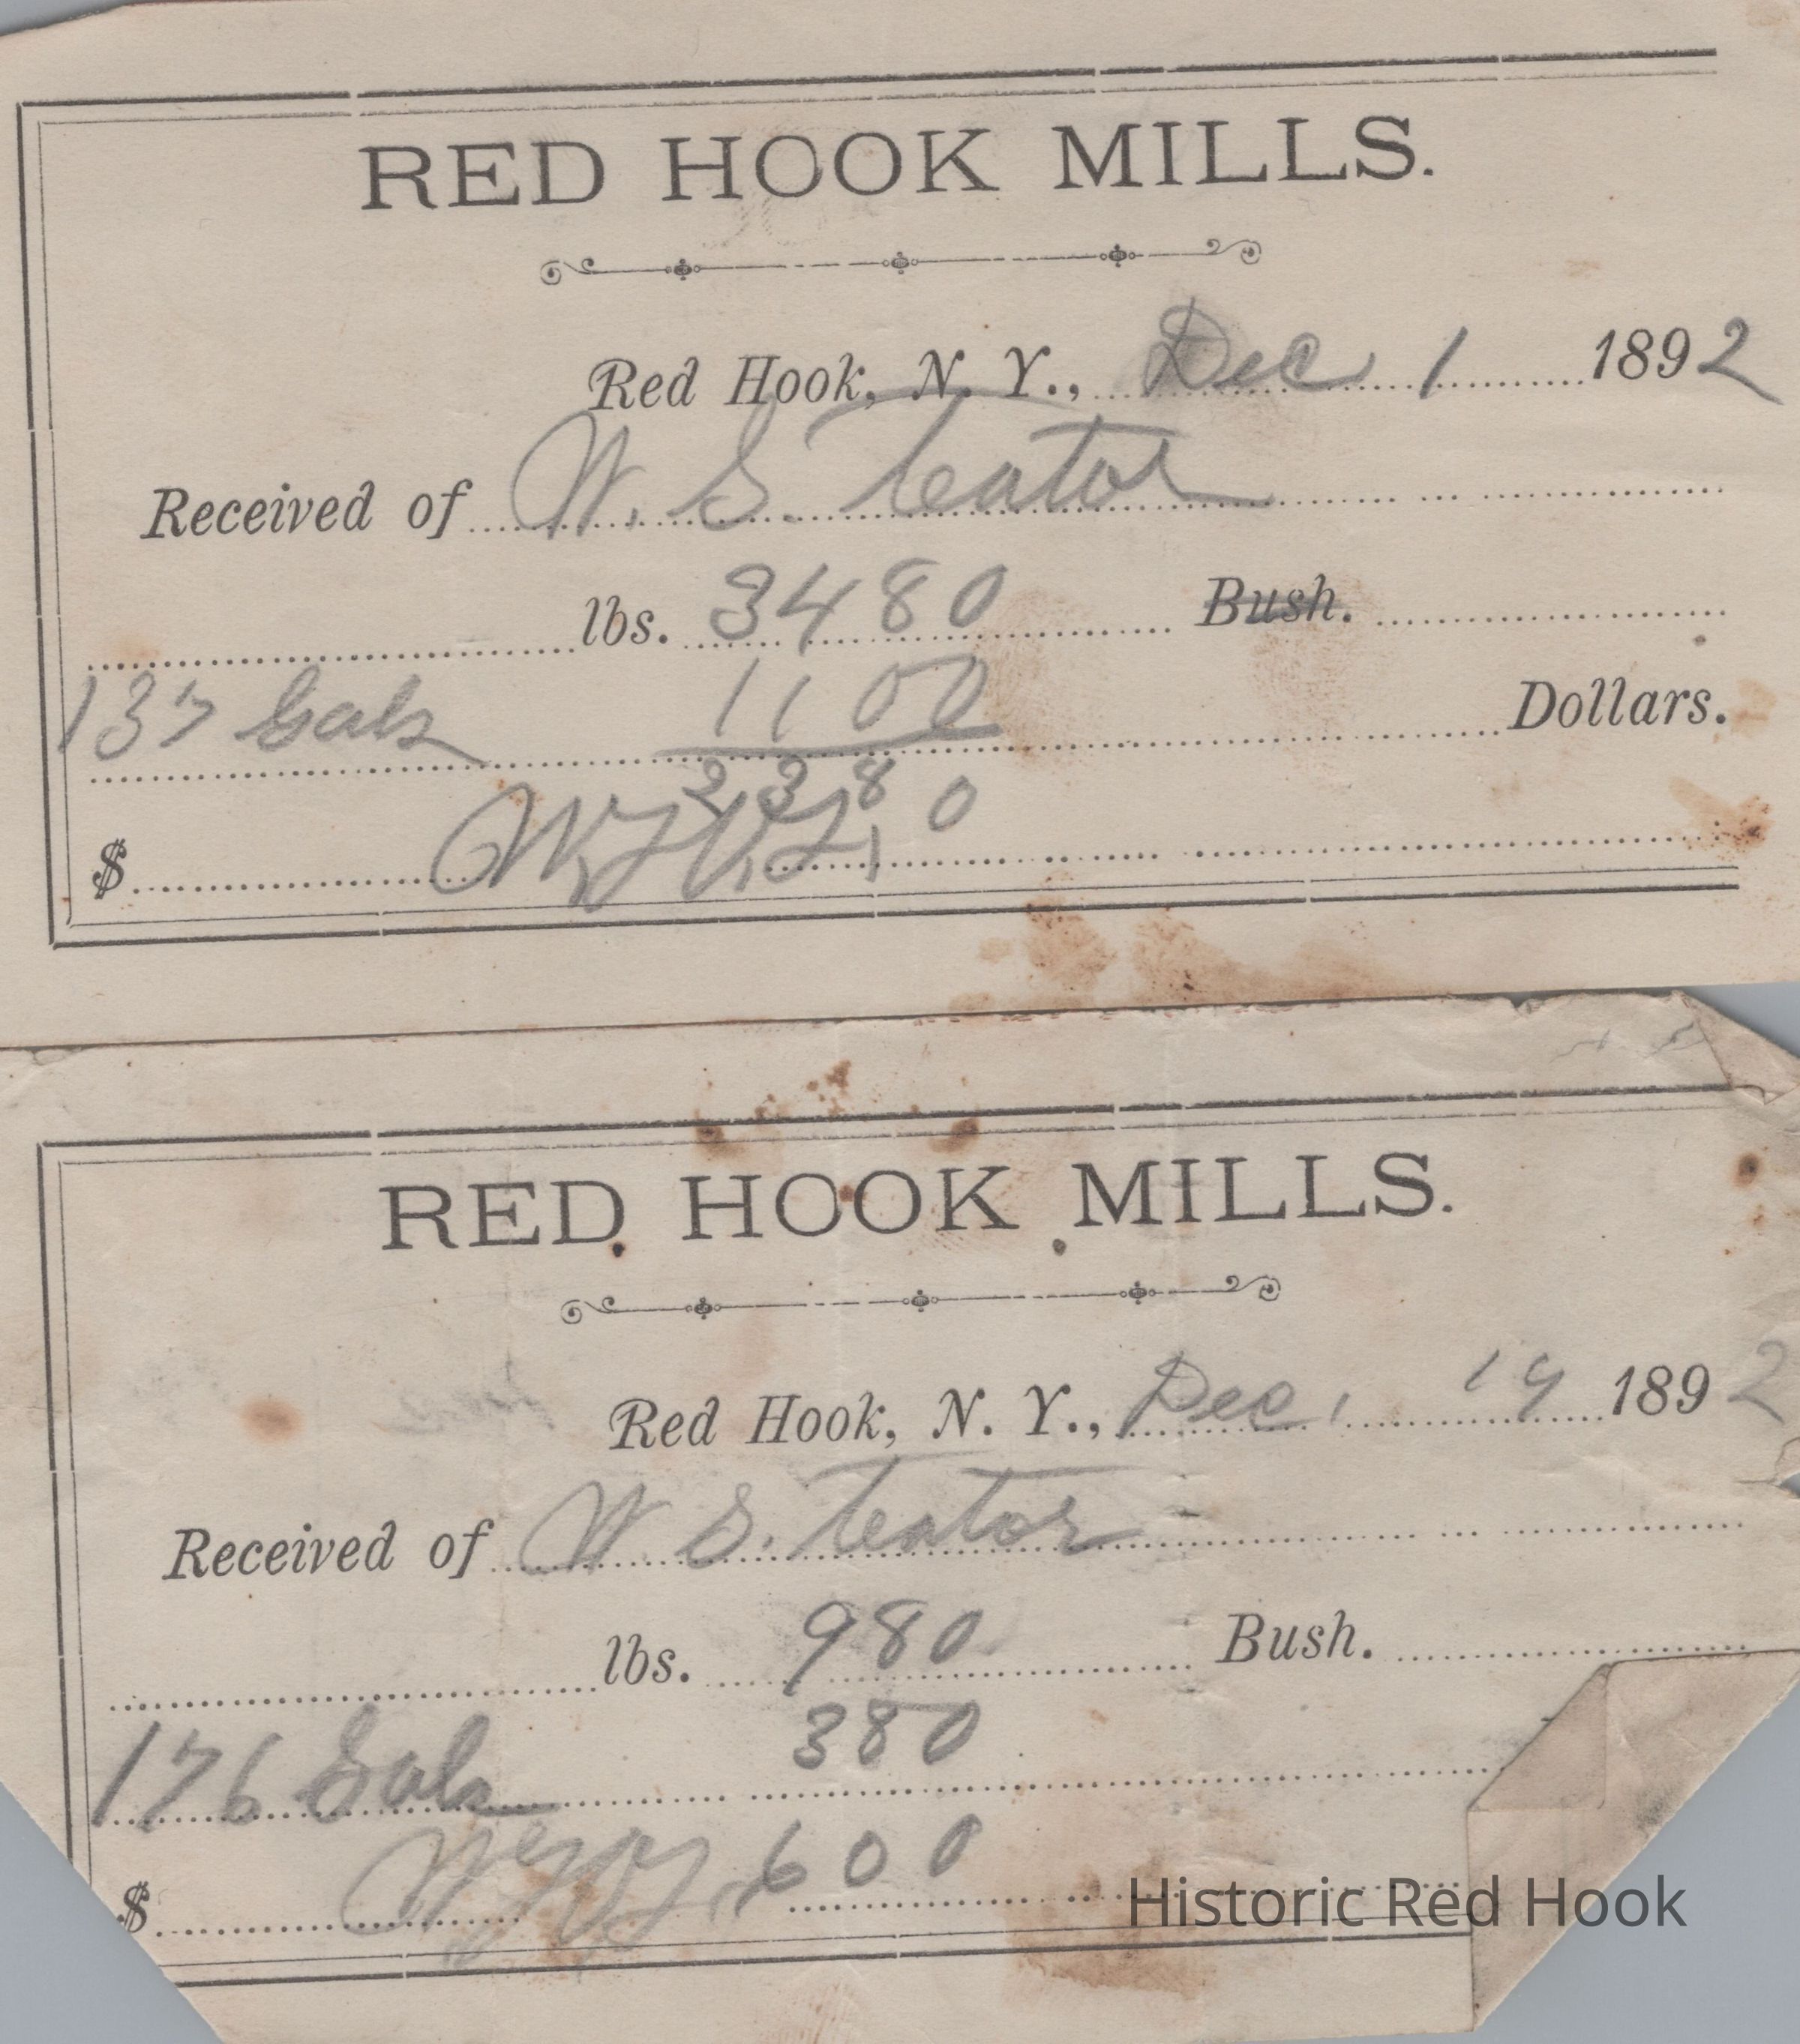 RED HOOK MILLS.
Red Hook, N. Y., Dec 1 1892
Received of W. S. Teator
lbs. 3480 Bush.
137 Gals 1100 Dollars.
2380
$
RED HOOK MILLS.
Red Hook, N. Y., Dec, 19 1892
Received of W S. Teator
lbs. 980 Bush.
380
176 Gals
600
$
Historic Red Hook